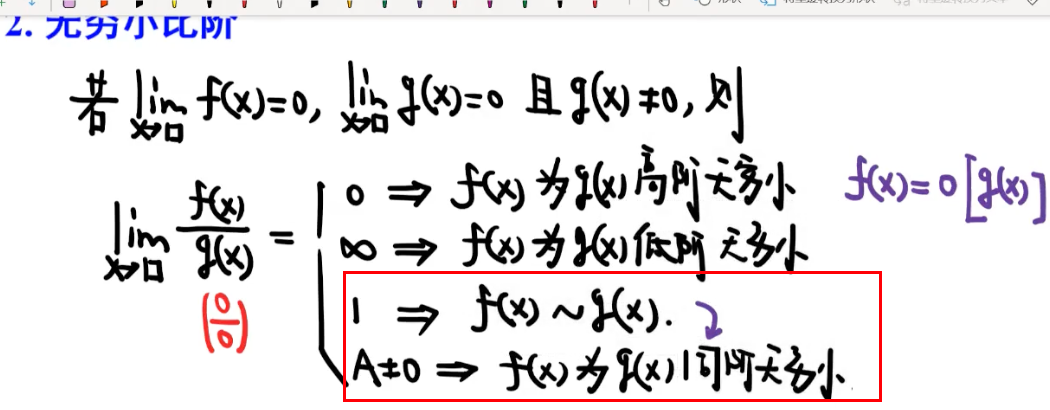 2. 无穷小比阶
若 lim x→□ f(x)=0, lim x→□ g(x)=0 且 g(x)≠0, 则
lim x→□ f(x)/g(x) =
0 ⇒ f(x) 为 g(x) 高阶无穷小 f(x)=0[g(x)]
∞ ⇒ f(x) 为 g(x) 低阶无穷小
(0/0)
1 ⇒ f(x)~g(x).
A≠0 ⇒ f(x) 为 g(x) 同阶无穷小.